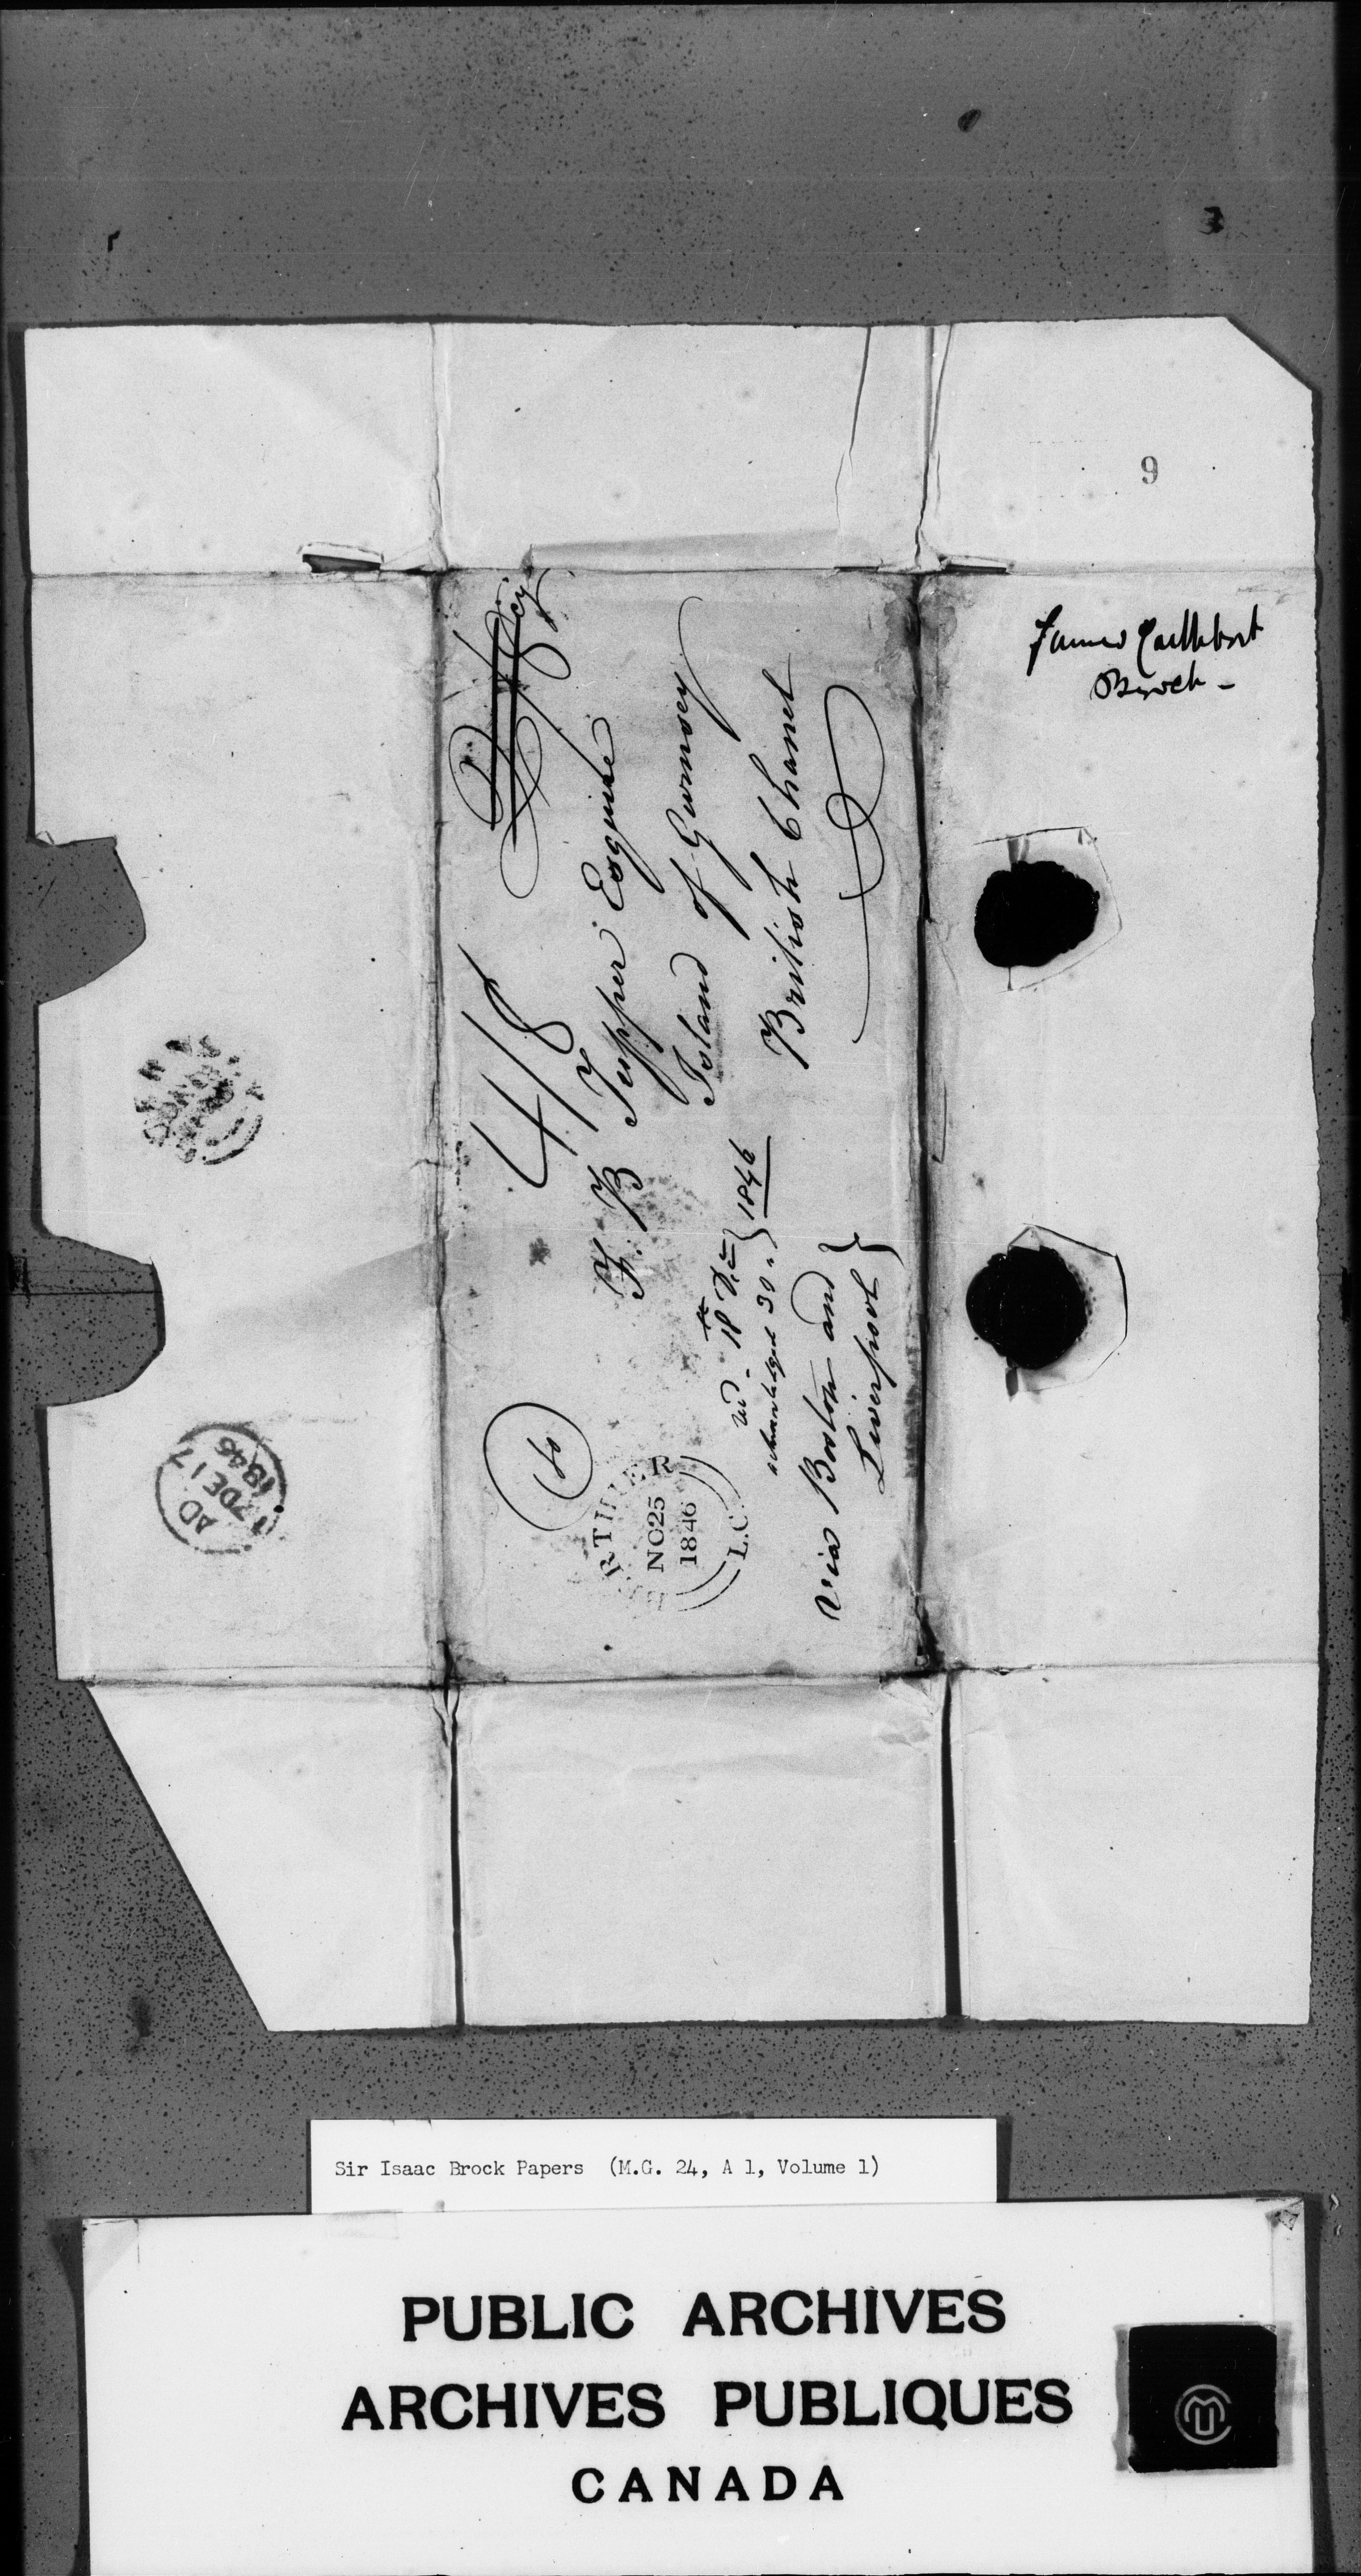 9
James Cuthbert
Brock -
4/8
F. B Tupper Esquire
Island of Gurnsey
British Chanel
18th Dec
acknowledged 30 "
1846
via Boston and
Liverpool
NO 25
1846
L.C.
AD
17 DE 17
1846
Sir Isaac Brock Papers (M.G. 24, A 1, Volume 1)
PUBLIC ARCHIVES
ARCHIVES PUBLIQUES
CANADA